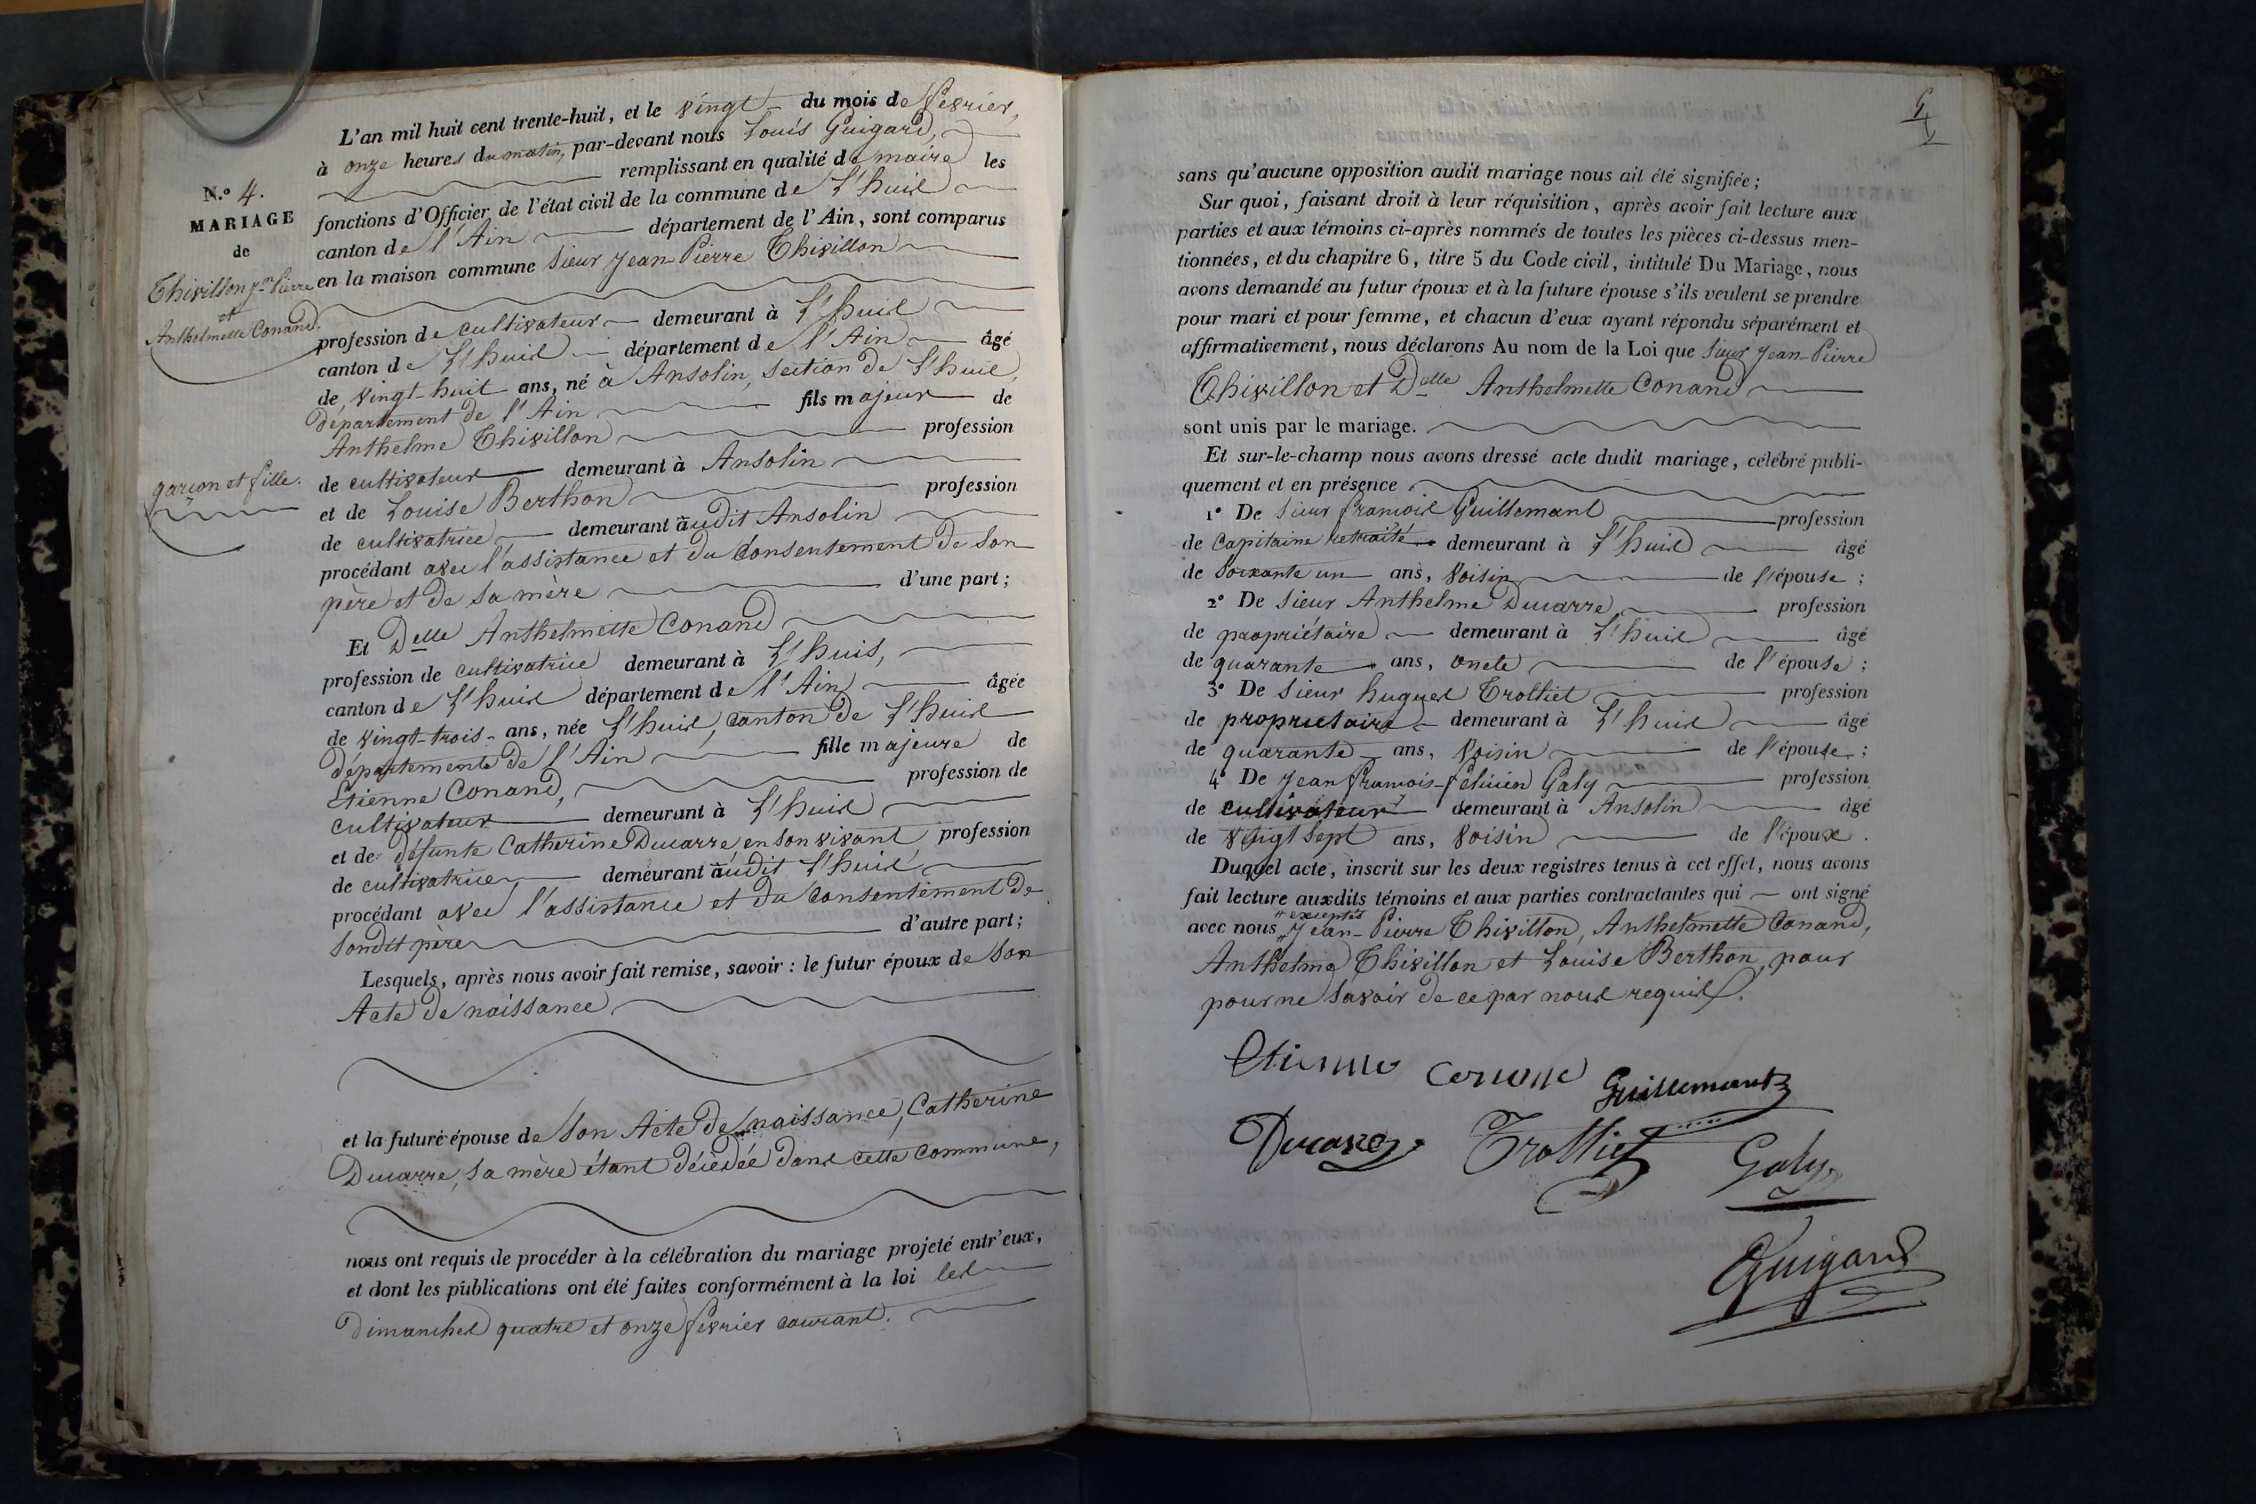 N.º 4.
MARIAGE
de
Thivillon Jn Pierre
et
Anthelmette Conand.
garçon et fille.
L'an mil huit cent trente-huit, et le vingt du mois de février,
à onze heures du matin, par-devant nous Louis Guigard,
remplissant en qualité de maire les
fonctions d'Officier de l'état civil de la commune de L'huis
canton de l'Ain département de l'Ain, sont comparus
en la maison commune Sieur Jean-Pierre Thivillon
profession de cultivateur demeurant à L'huis
canton de L'huis département de l'Ain âgé
de vingt-huit ans, né à Ansolin, section de L'huis,
département de l'Ain fils majeur de
Anthelme Thivillon profession
de cultivateur demeurant à Ansolin
et de Louise Berthon profession
de cultivatrice demeurant audit Ansolin
procédant avec l'assistance et du consentement de son
père et de sa mère d'une part;
Et Delle Anthelmette Conand
profession de cultivatrice demeurant à L'huis,
canton de L'huis département de l'Ain âgée
de vingt-trois ans, née L'huis, canton de L'huis
département de l'Ain fille majeure de
Etienne Conand, profession de
cultivateur demeurant à L'huis
et de défunte Catherine Ducarre, en son vivant profession
de cultivatrice, demeurant audit L'huis,
procédant avec l'assistance et du consentement de
sondit père d'autre part;
Lesquels, après nous avoir fait remise, savoir : le futur époux de son
Acte de naissance,
et la future épouse de son Acte de naissance, Catherine
Ducarre, sa mère étant décédée dans cette commune,
nous ont requis de procéder à la célébration du mariage projeté entr'eux,
et dont les publications ont été faites conformément à la loi les
Dimanches quatre et onze février courant.
sans qu'aucune opposition audit mariage nous ait été signifiée;
Sur quoi, faisant droit à leur réquisition, après avoir fait lecture aux
parties et aux témoins ci-après nommés de toutes les pièces ci-dessus men-
tionnées, et du chapitre 6, titre 5 du Code civil, intitulé Du Mariage, nous
avons demandé au futur époux et à la future épouse s'ils veulent se prendre
pour mari et pour femme, et chacun d'eux ayant répondu séparément et
affirmativement, nous déclarons Au nom de la Loi que Sieur Jean-Pierre
Thivillon et Delle Anthelmette Conand
sont unis par le mariage.
Et sur-le-champ nous avons dressé acte dudit mariage, célébré publi-
quement et en présence
1º De Sieur françois Guillemant profession
de Capitaine retraité demeurant à L'huis âgé
de soixante un ans, voisin de l'épouse ;
2º De Sieur Anthelme Ducarre, profession
de propriétaire demeurant à L'huis âgé
de quarante ans, oncle de l'épouse ;
3º De Sieur hugues Trolliet profession
de propriétaire demeurant à L'huis âgé
de quarante ans, voisin de l'épouse ;
4º De Jean françois-félicien Galy profession
de cultivateur demeurant à Ansolin âgé
de vingt sept ans, voisin de l'époux.
Duquel acte, inscrit sur les deux registres tenus à cet effet, nous avons
fait lecture auxdits témoins et aux parties contractantes qui ont signé
avec nous exceptés Jean-Pierre Thivillon, Anthelmette Conand,
Anthelme Thivillon et Louise Berthon, pour
pour ne savoir de ce par nous requis.
Etienne Conand Guillemant
Ducarre Trolliet Galy
Guigard